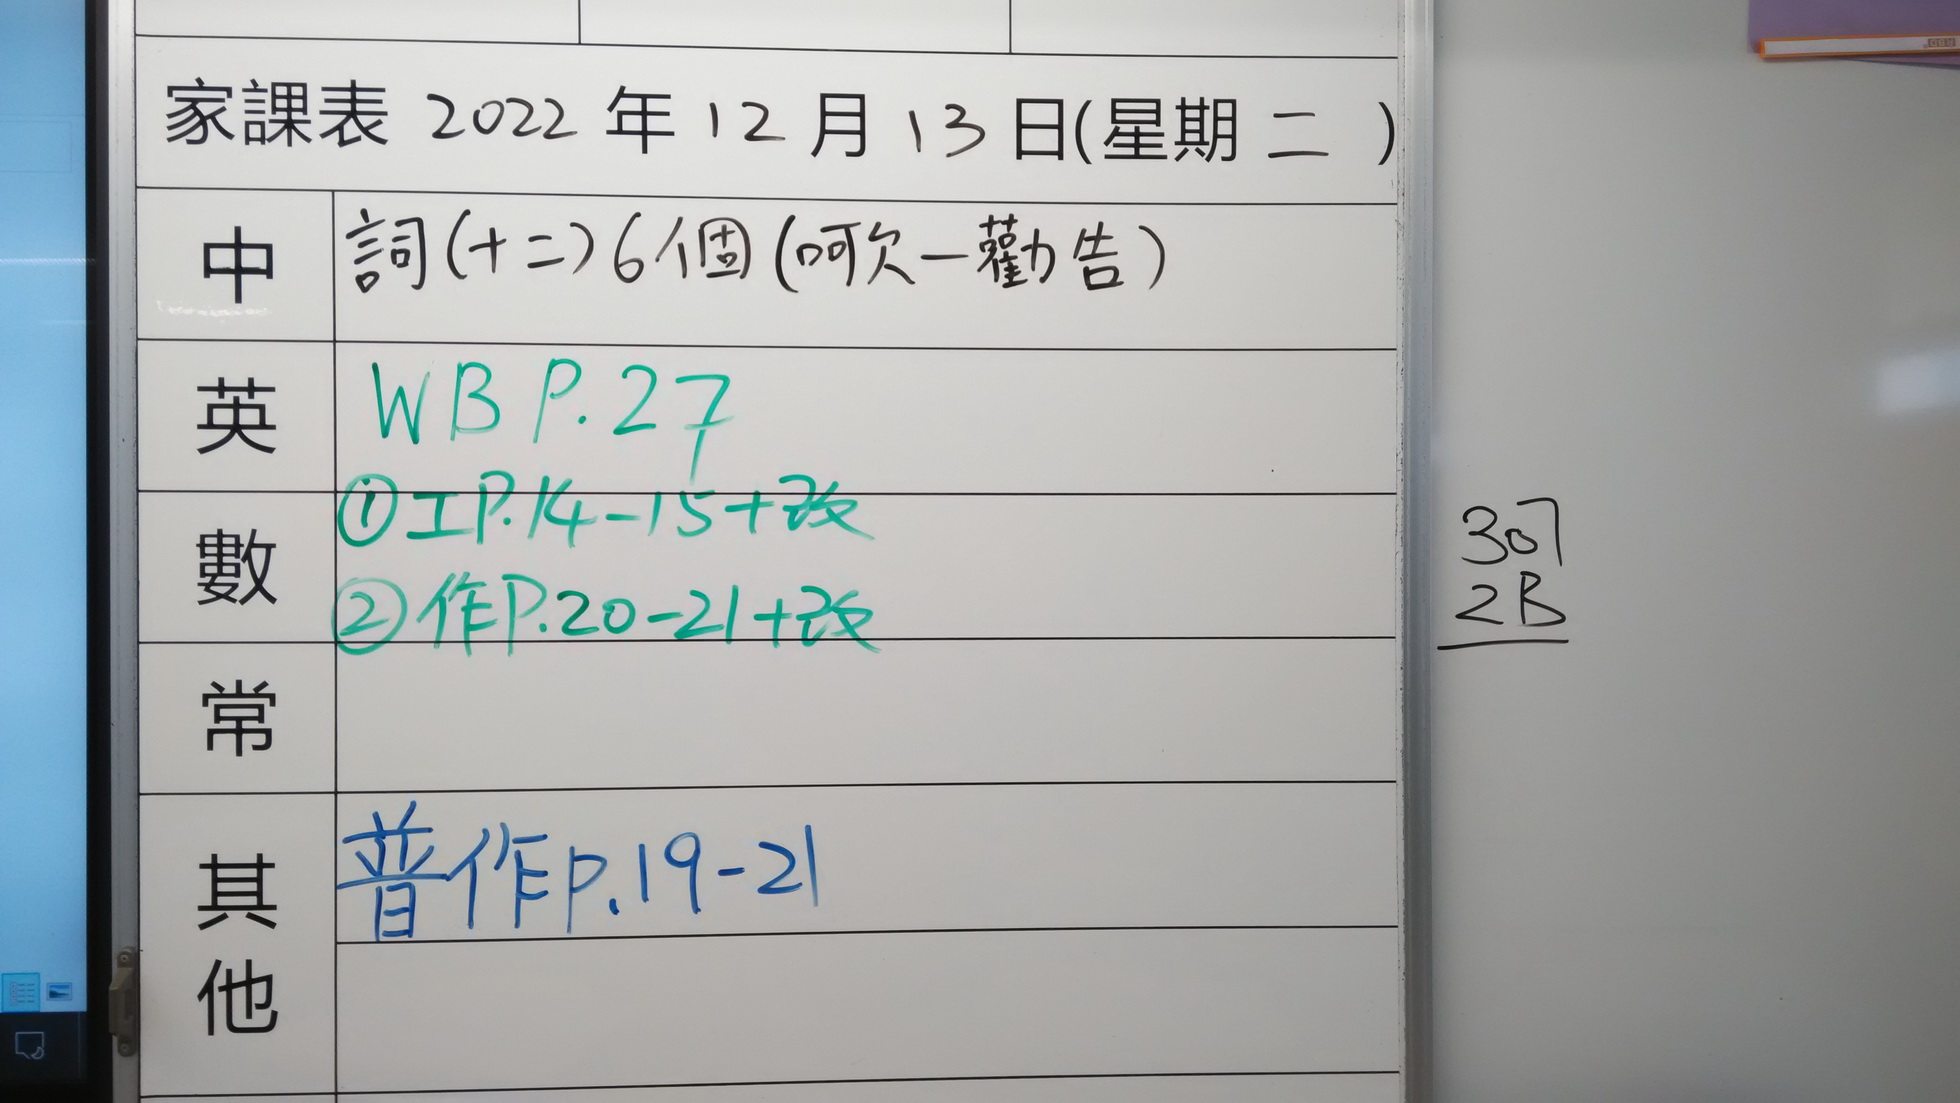 家課表 2022 年 12 月 13 日(星期 二 )
中 詞(十二)6個(呵欠—勸告)
英 WB P.27
數 ①工P.14-15+改
②作P.20-21+改
常
其他 普作p.19-21
307
2B